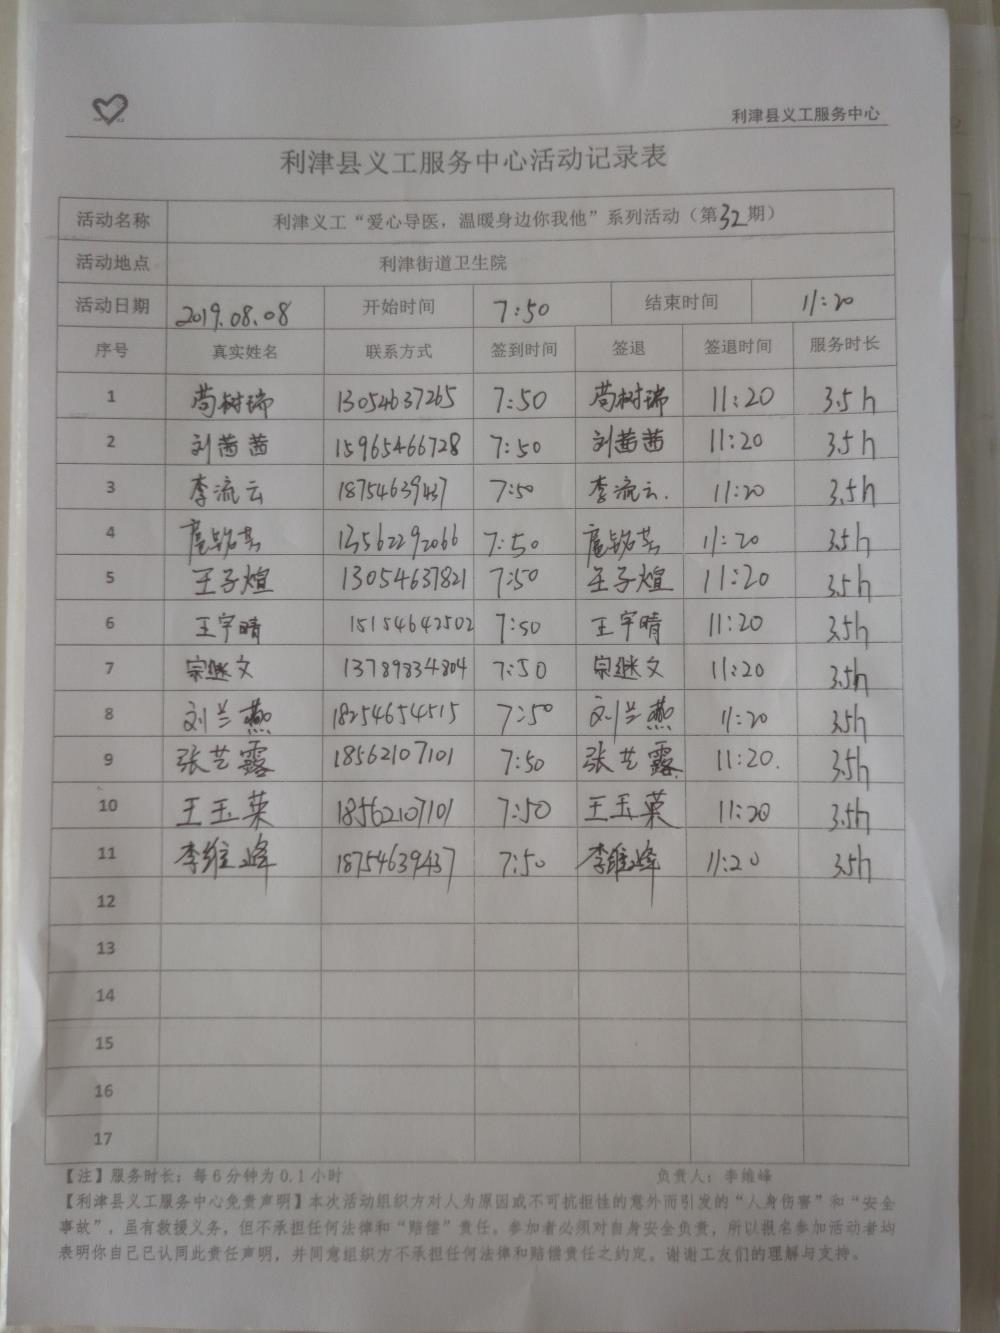 利津县义工服务中心
利津县义工服务中心活动记录表
活动名称 利津义工“爱心导医，温暖身边你我他”系列活动（第32期）
活动地点 利津街道卫生院
活动日期 2019.08.08 开始时间 7:50 结束时间 11:20
序号 真实姓名 联系方式 签到时间 签退 签退时间 服务时长
1 荀树瑞 13054637265 7:50 荀树瑞 11:20 3.5h
2 刘茜茜 15965466728 7:50 刘茜茜 11:20 3.5h
3 李流云 18754639437 7:50 李流云. 11:20 3.5h
4 13562292066 7:50 11:20 3.5h
5 王子煊 13054637821 7:50 王子煊 11:20 3.5h
6 王宇晴 15154642502 7:50 王宇晴 11:20 3.5h
7 宗继文 13789834804 7:50 宗继文 11:20 3.5h
8 刘兰燕 18254654515 7:50 刘兰燕 11:20 3.5h
9 张艺露 18562107101 7:50 张艺露 11:20. 3.5h
10 王玉英 18562107101 7:50 王玉英 11:20 3.5h
11 李维峰 18754639437 7:50 李维峰 11:20 3.5h
12
13
14
15
16
17
【注】服务时长：每6分钟为0.1小时 负责人：李维峰
【利津县义工服务中心免责声明】本次活动组织方对人为原因或不可抗拒性的意外而引发的“人身伤害”和“安全
事故”，虽有救援义务，但不承担任何法律和“赔偿”责任。参加者必须对自身安全负责，所以报名参加活动者均
表明你自己已认同此责任声明，并同意组织方不承担任何法律和赔偿责任之约定。谢谢工友们的理解与支持。